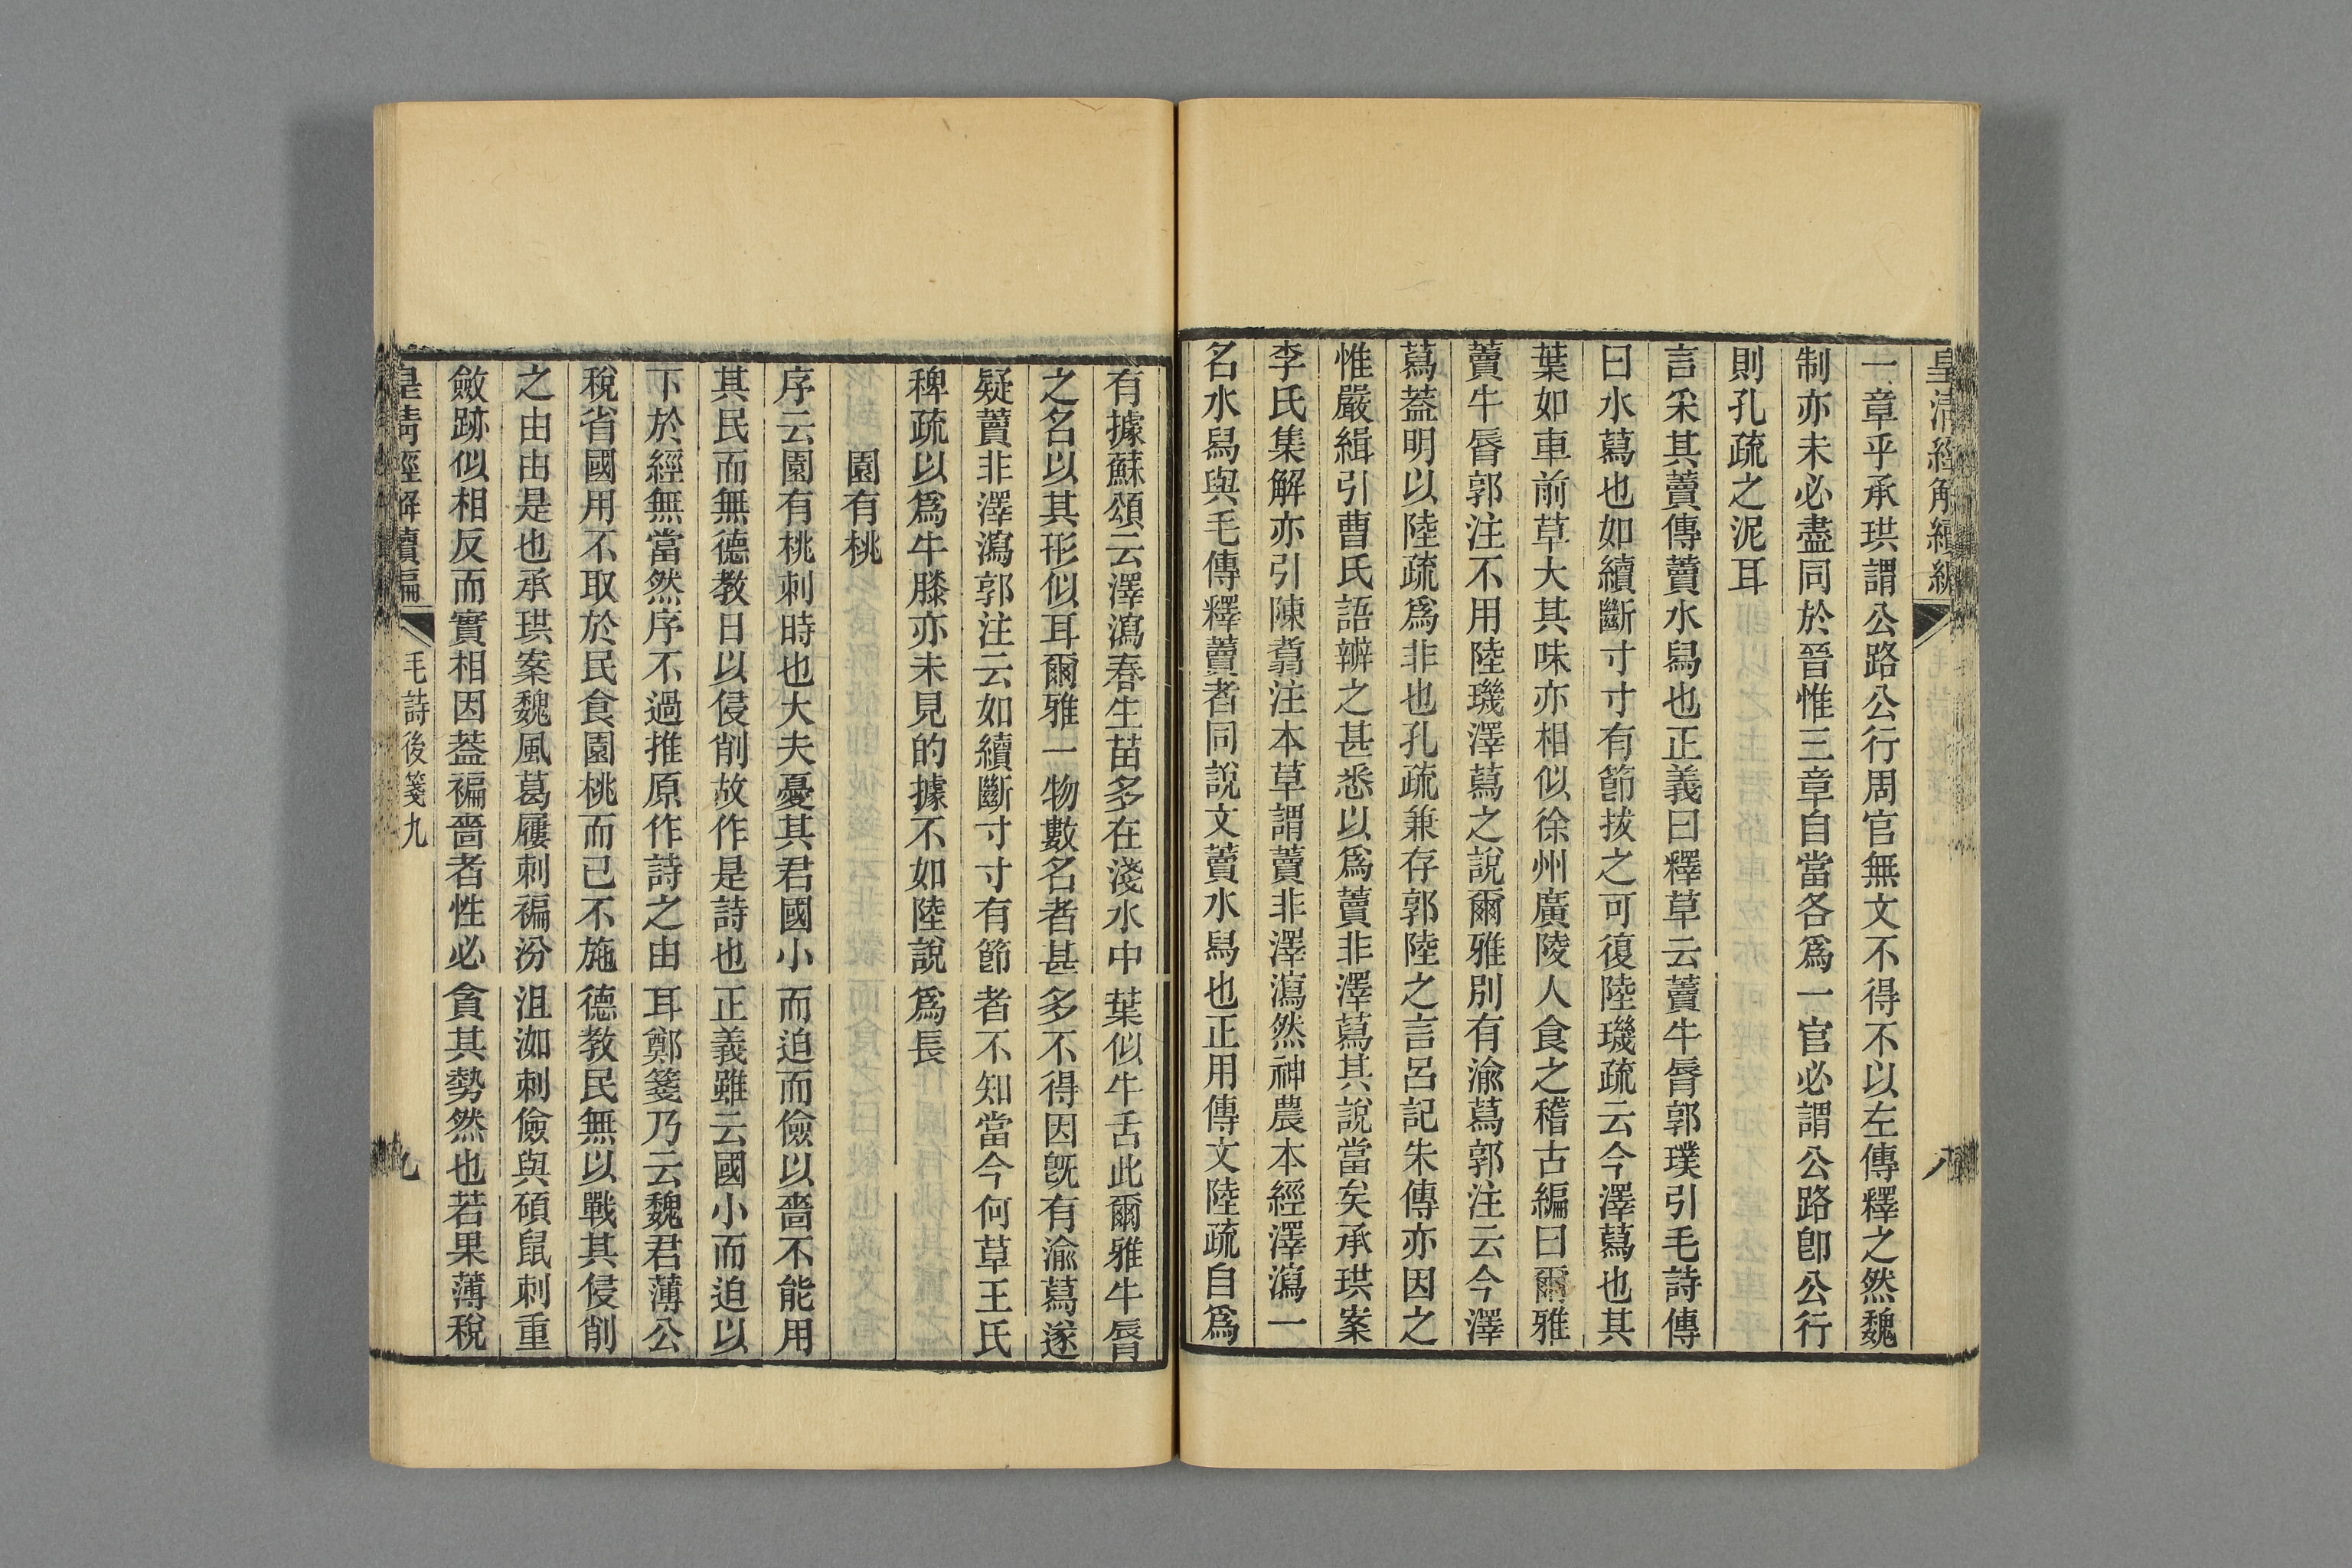 皇清經解續編
八
一章乎承珙謂公路公行周官無文不得不以左傳釋之然魏
制亦未必盡同於晉惟三章自當各爲一官必謂公路卽公行
則孔疏之泥耳
言采其藚傳藚水舄也正義曰釋草云藚牛脣郭璞引毛詩傳
曰水蕮也如續斷寸寸有節拔之可復陸璣疏云今澤蕮也其
葉如車前草大其味亦相似徐州廣陵人食之稽古編曰爾雅
藚牛脣郭注不用陸璣澤蕮之說爾雅別有渝蕮郭注云今澤
蕮葢明以陸疏爲非也孔疏兼存郭陸之言呂記朱傳亦因之
惟嚴緝引曹氏語辨之甚悉以爲藚非澤蕮其說當矣承珙案
李氏集解亦引陳藏注本草謂藚非澤瀉然神農本經澤瀉一
名水舄與毛傳釋藚者同說文藚水舄也正用傳文陸疏自爲
有據蘇頌云澤瀉春生苗多在淺水中葉似牛舌此爾雅牛脣
之名以其形似耳爾雅一物數名者甚多不得因旣有渝蕮遂
疑藚非澤瀉郭注云如續斷寸寸有節者不知當今何草王氏
稗疏以爲牛膝亦未見的據不如陸說爲長
園有桃
序云園有桃刺時也大夫憂其君國小而迫而儉以嗇不能用
其民而無德教日以侵削故作是詩也正義雖云國小而迫以
下於經無當然序不過推原作詩之由耳鄭箋乃云魏君薄公
稅省國用不取於民食園桃而已不施德教民無以戰其侵削
之由由是也承珙案魏風葛屨刺褊汾沮洳刺儉與碩鼠刺重
斂跡似相反而實相因葢褊嗇者性必貪其勢然也若果薄稅
皇清經解續編
毛詩後箋九
九